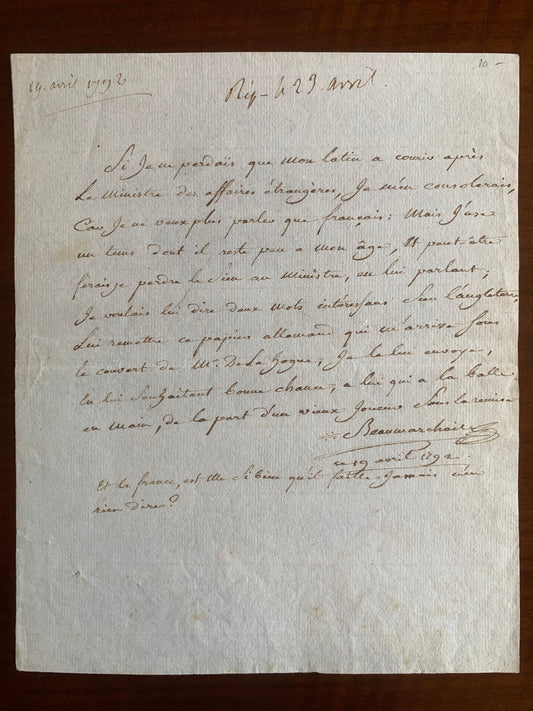 10 -
19. avril 1792
Rép - le 23 avril.
Si Je ne perdais que mon latin a courir après
Le Ministre des affaires étrangères, Je m'en consolerais,
Car Je ne veux plus parler que français: Mais J'use
un tems dont il reste peu a mon âge, Et peut être
ferais-je perdre le Sien au Ministre, en lui parlant;
Je voulais lui dire deux mots intéressans Sur l'angleterre,
Lui remettre ce papier allemand qui m'arrive Sous
le couvert de Mr. De La hogue, Je le lui envoye,
En lui Souhaitant bonne chance, a lui qui a la balle
en main, de la part d'un vieux Joueur Sous la remise
Beaumarchais
ce 19 avril 1792.
Et la france, est Elle Si bien qu'il faille Jamais n'en
rien dire?